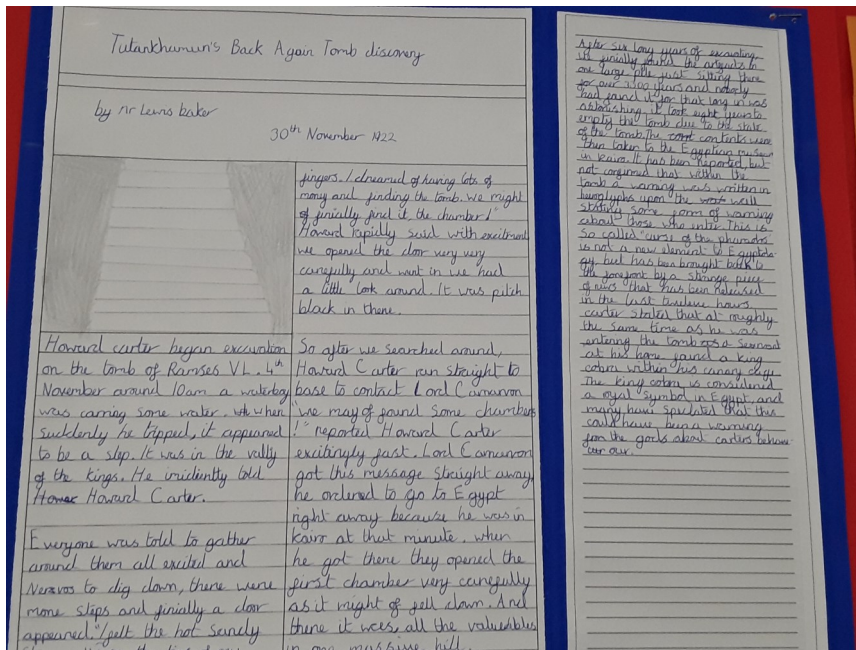 Tutankhamun's Back Again Tomb discovery
by Mr Lewis baker
30th November 1922
Howard carter began excavation
on the tomb of Ramses VI. 4th
November around 10am a waterboy
was carring some water. when
suddenly he tripped, it appeared
to be a step. It was in the vally
of the kings. He imidently told
Howard Carter.
Everyone was told to gather
around them all excited and
Nervos to dig down, there were
more steps and finially a door
appeared. "I felt the hot sandy
fingers. I dreamed of having lots of
money and finding the tomb. we might
of finially find it, the chamber!"
Howard rapidly said with excitment
we opened the door very very
carefully and went in we had
a little look around. It was pitch
black in there.
So after we searched around,
Howard Carter run straight to
base to contact Lord Carnarvon
"we may of found some chambers
!" reported Howard Carter
excitingly fast. Lord Carnarvon
got this message straight away,
he ordered to go to Egypt
right away because he was in
kairo at that minute. when
he got there they opened the
first chamber very carefully
as it might of fell down. And
there it was, all the valuables
in one massive hill.
After six long years of excavating,
We finially found the artifacts in
one large pile just sitting there
for over 3300 years and nobody
had found it for that long in was
astonishing. it took eight years to
empty the tomb due to the state
of the tomb. The contents were
then taken to the Egyptian museum
in kairo. It has been reported, but
not confirmed that within the
tomb a warning was written in
upon the wall
stating some form of warning
about those who enter. This is
so called "curse of the pharaohs
is not a new element to Egyptolo
gy, but has been brought back to
the forefront by a strange piece
of news that has been released
in the last twelve hours.
carter stated that at roughly
the same time as he was
entering the tomb a servant
at his home found a king
cobra within his canary cage.
The king cobra is considered
a royal symbol in Egypt, and
many have speclated that this
could have being a warning
from the gods about carters